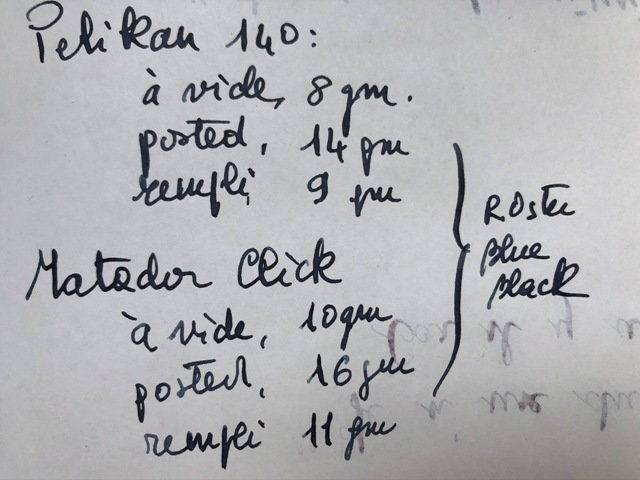 Pelikan 140:
à vide, 8 gm.
posted, 14 gm
rempli, 9 gm
Matador Click
à vide, 10 gm
posted, 16 gm
rempli 11 gm
Roster
Blue
Black